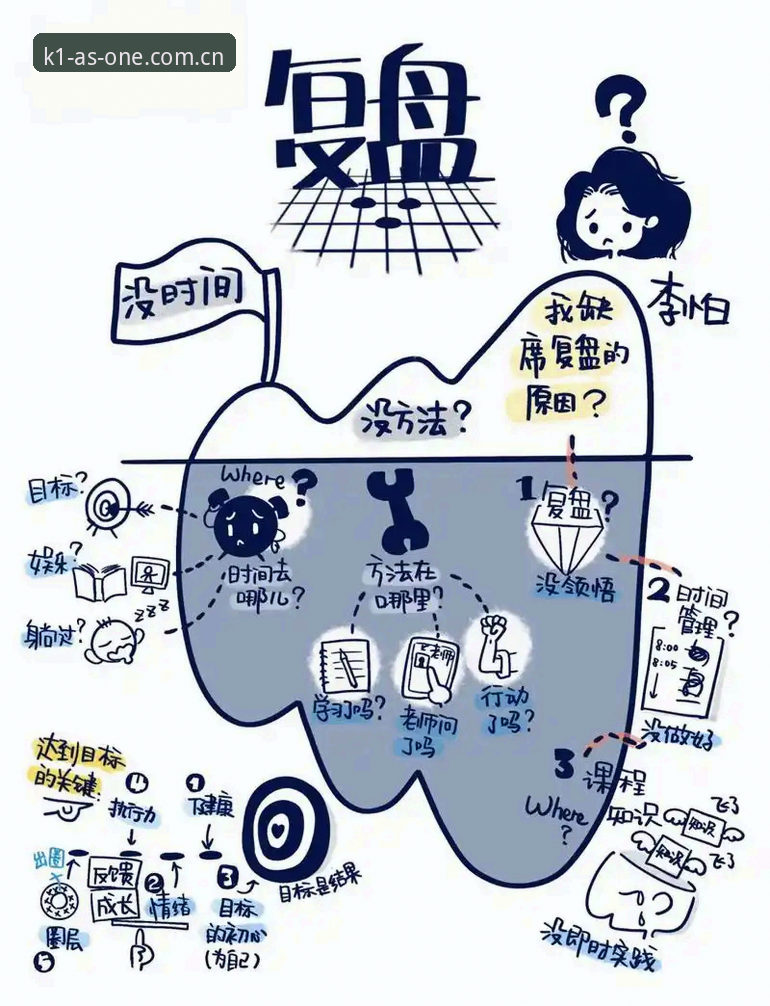 k1-as-one.com.cn
复盘
?
李怕
没时间
我缺
席复盘的
原因?
没方法?
Where?
时间去
哪儿?
目标?
娱乐?
躺过?
zzz
方法在
哪里?
学习了吗?
老师
老师问
了吗
行动
了吗?
1
复盘?
没领悟
2 时间
管理?
8:00
8:05
没做好
3 课程
Where
?
知识
知识
飞了
知识
飞了
没即时实践
达到目标
的关键:
4
执行力
1
下健康
出圈
反馈
成长
2
情绪
3
目标
的初心
(为自己)
目标是结果
圈层
5